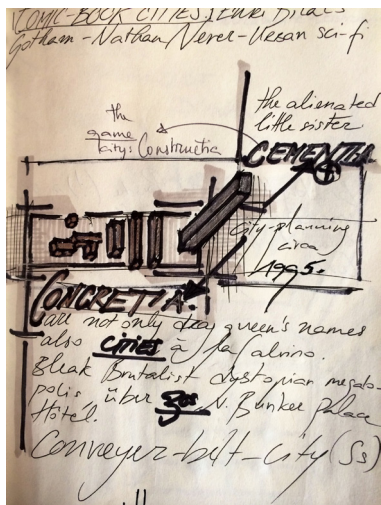 COMIC-BOOK CITIES: Enki Bilal's
Gotham - Nathan Never - Urban sci-fi
the alienated
little sister
the
game
city: Constructia
CEMENTIA
City-planning
circa
1995.
CONCRETIA:
are not only drag queen's names
also CITIES à la Calvino.
Bleak Brutalist dystopian megalo-
polis über 80s N. Bunker Palace
Hôtel.
Conveyer-belt-City (Ss)